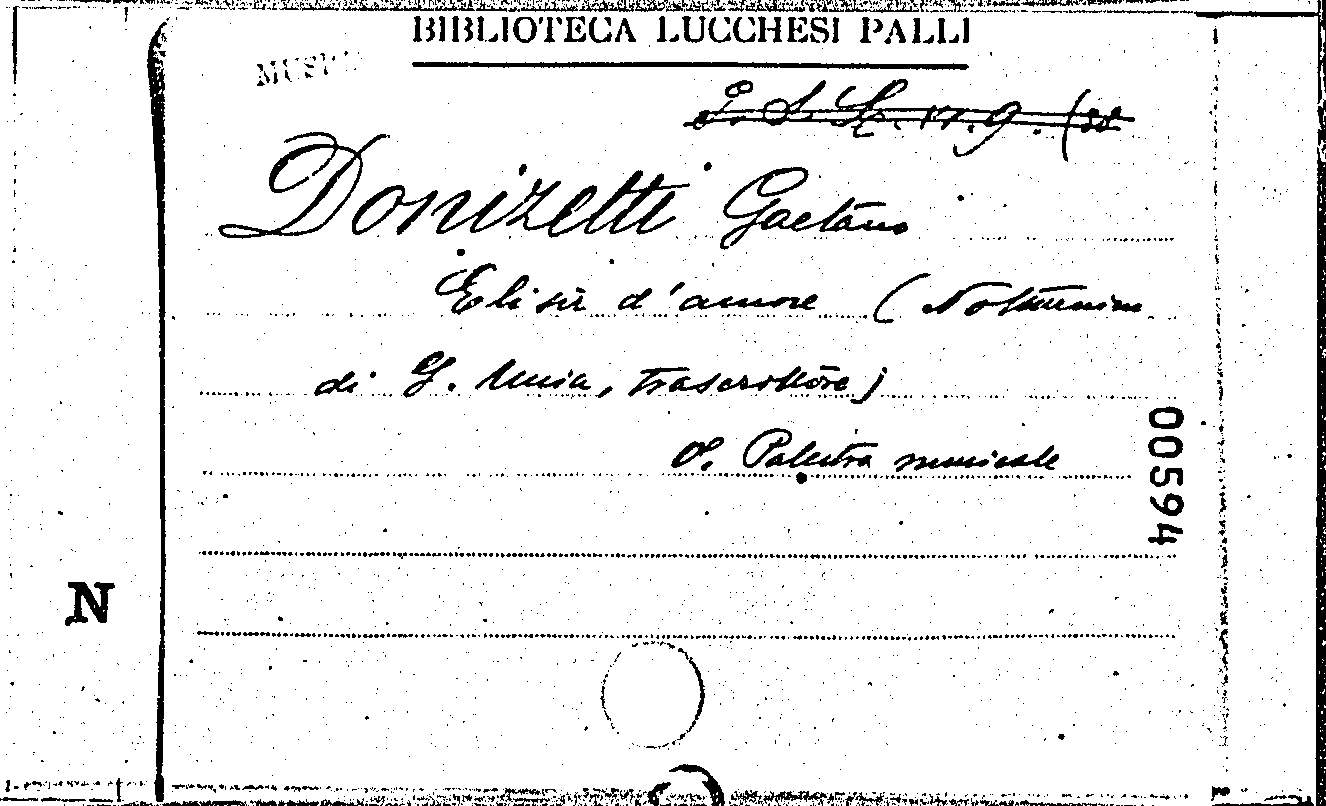 BIBLIOTECA LUCCHESI PALLI
Donizetti Gaetano
Elisir d'amore (Notturnino
di G. Menia, trascrittore)
V. Palestra musicale
00594
N